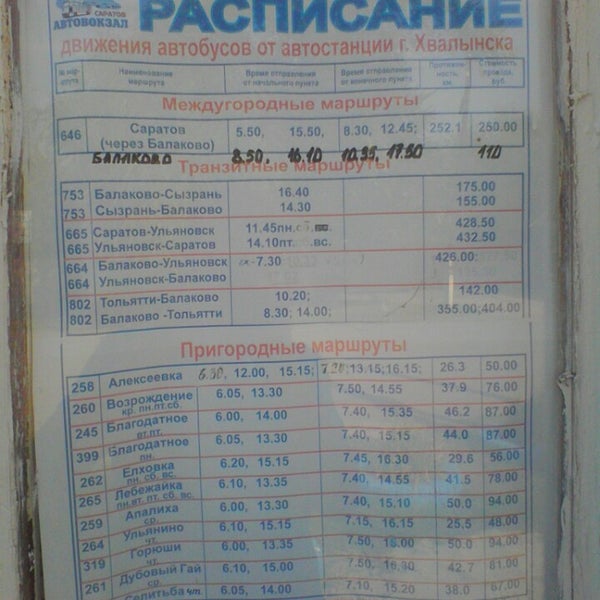 САРАТОВ
АВТОВОКЗАЛ
РАСПИСАНИЕ
движения автобусов от автостанции г. Хвалынска
№ мар-шрута Наименование маршрута Время отправления от начального пункта Время отправления от конечного пункта Протяжен-ность, км. Стоимость проезда, руб.
Междугородные маршруты
646 Саратов (через Балаково) 5.50, 15.50, 8.30, 12.45; 252.1 250.00
БАЛАКОВО 8.50, 16.10 10.35, 17.50 110
Транзитные маршруты
753 Балаково-Сызрань 16.40 175.00
753 Сызрань-Балаково 14.30 155.00
665 Саратов-Ульяновск 11.45пн. 428.50
665 Ульяновск-Саратов 14.10пт. вс. 432.50
664 Балаково-Ульяновск 7.30 426.00
664 Ульяновск-Балаково
802 Тольятти-Балаково 10.20; 142.00
802 Балаково -Тольятти 8.30; 14.00; 355.00;404.00
Пригородные маршруты
258 Алексеевка 6.30, 12.00, 15.15; 7.20;13.15;16.15; 26.3 50.00
260 Возрождение кр. пн.пт.сб. 6.05, 13.30 7.50, 14.55 37.9 76.00
245 Благодатное вт.пт. 6.00, 14.00 7.40, 15.35 46.2 87.00
399 Благодатное пн. 6.05, 13.30 7.40, 15.15 44.0 87.00
262 Елховка пн. сб. вс. 6.20, 15.15 7.45, 16.30 29.6 56.00
265 Лебежайка пн.вт. пт. сб. вс. 6.10, 13.35 7.40, 14.55 41.5 78.00
259 Апалиха ср. 6.00, 13.30 7.40, 15.10 50.0 94.00
264 Ульянино чт. 6.10, 15.15 7.15, 16.15 25.5 48.00
319 Горюши чт. 6.00, 13.35 7.50, 50.0 94.00
261 Дубовый Гай ср. 6.10, 15.00 7.50, 42.7 81.00
Селитьба чт. 6.05, 14.00 7.10, 15.20 38.0 67.00